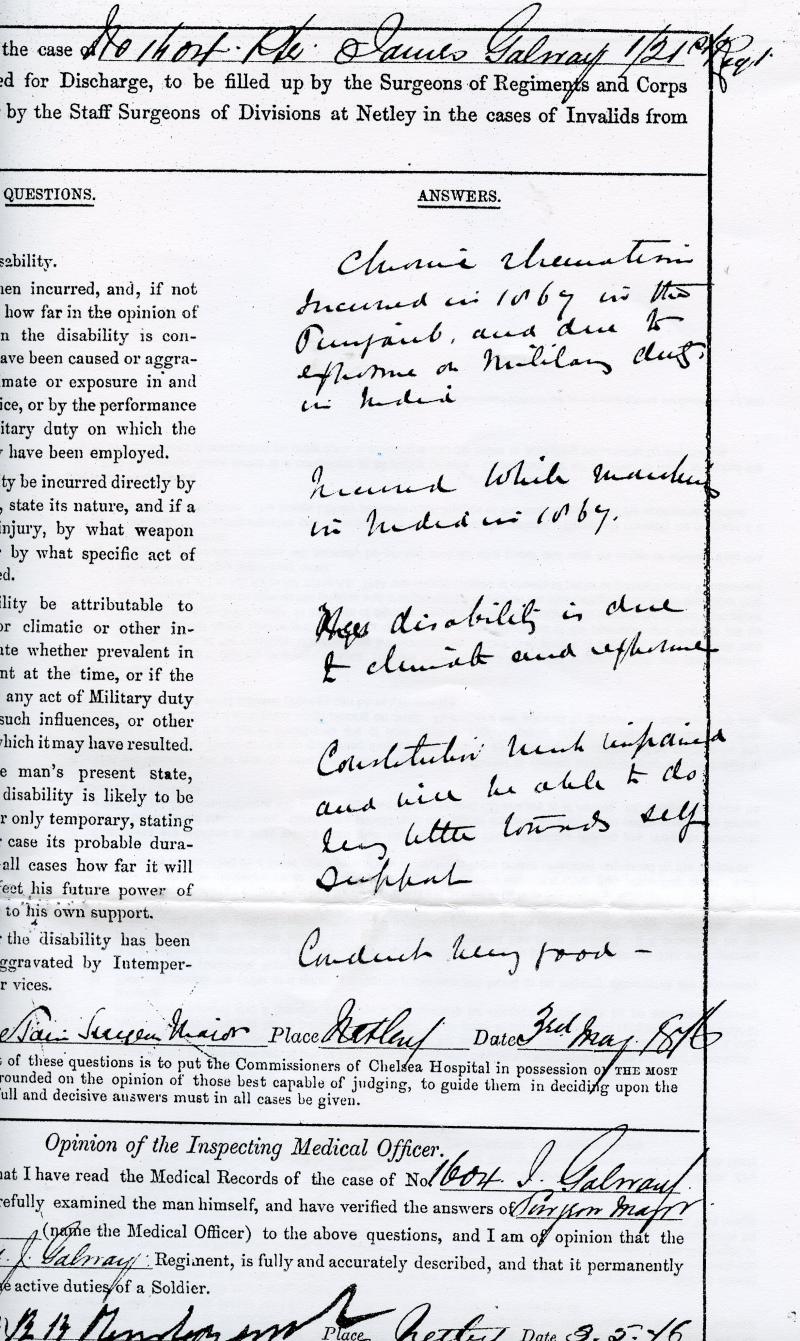 the case of No 1604. Pte. James Galway 1/21st Regt.
ed for Discharge, to be filled up by the Surgeons of Regiments and Corps
by the Staff Surgeons of Divisions at Netley in the cases of Invalids from
QUESTIONS.
ANSWERS.
sability.
en incurred, and, if not
how far in the opinion of
n the disability is con-
ave been caused or aggra-
mate or exposure in and
ice, or by the performance
itary duty on which the
y have been employed.
Chronic rheumatism
Incurred in 1867 in the
Punjaub, and due to
exposure on Military duty
in India
ty be incurred directly by
, state its nature, and if a
injury, by what weapon
by what specific act of
ed.
Incurred While marching
in India in 1867.
ility be attributable to
or climatic or other in-
te whether prevalent in
nt at the time, or if the
any act of Military duty
such influences, or other
which it may have resulted.
disability is due
to climate and exposure
e man's present state,
disability is likely to be
r only temporary, stating
case its probable dura-
all cases how far it will
fect his future power of
to his own support.
Constitution much impaired
and will be able to do
very little towards self
support
the disability has been
ggravated by Intemper-
r vices.
Conduct very good -
Surgeon Major Place Netley Date 3rd May 1876
of these questions is to put the Commissioners of Chelsea Hospital in possession of THE MOST
rounded on the opinion of those best capable of judging, to guide them in deciding upon the
full and decisive answers must in all cases be given.
Opinion of the Inspecting Medical Officer.
hat I have read the Medical Records of the case of No 1604 J. Galway
refully examined the man himself, and have verified the answers of Surgeon Major
(name the Medical Officer) to the above questions, and I am of opinion that the
J. Galway Regiment, is fully and accurately described, and that it permanently
e active duties of a Soldier.
Place Netley Date 3.5.76